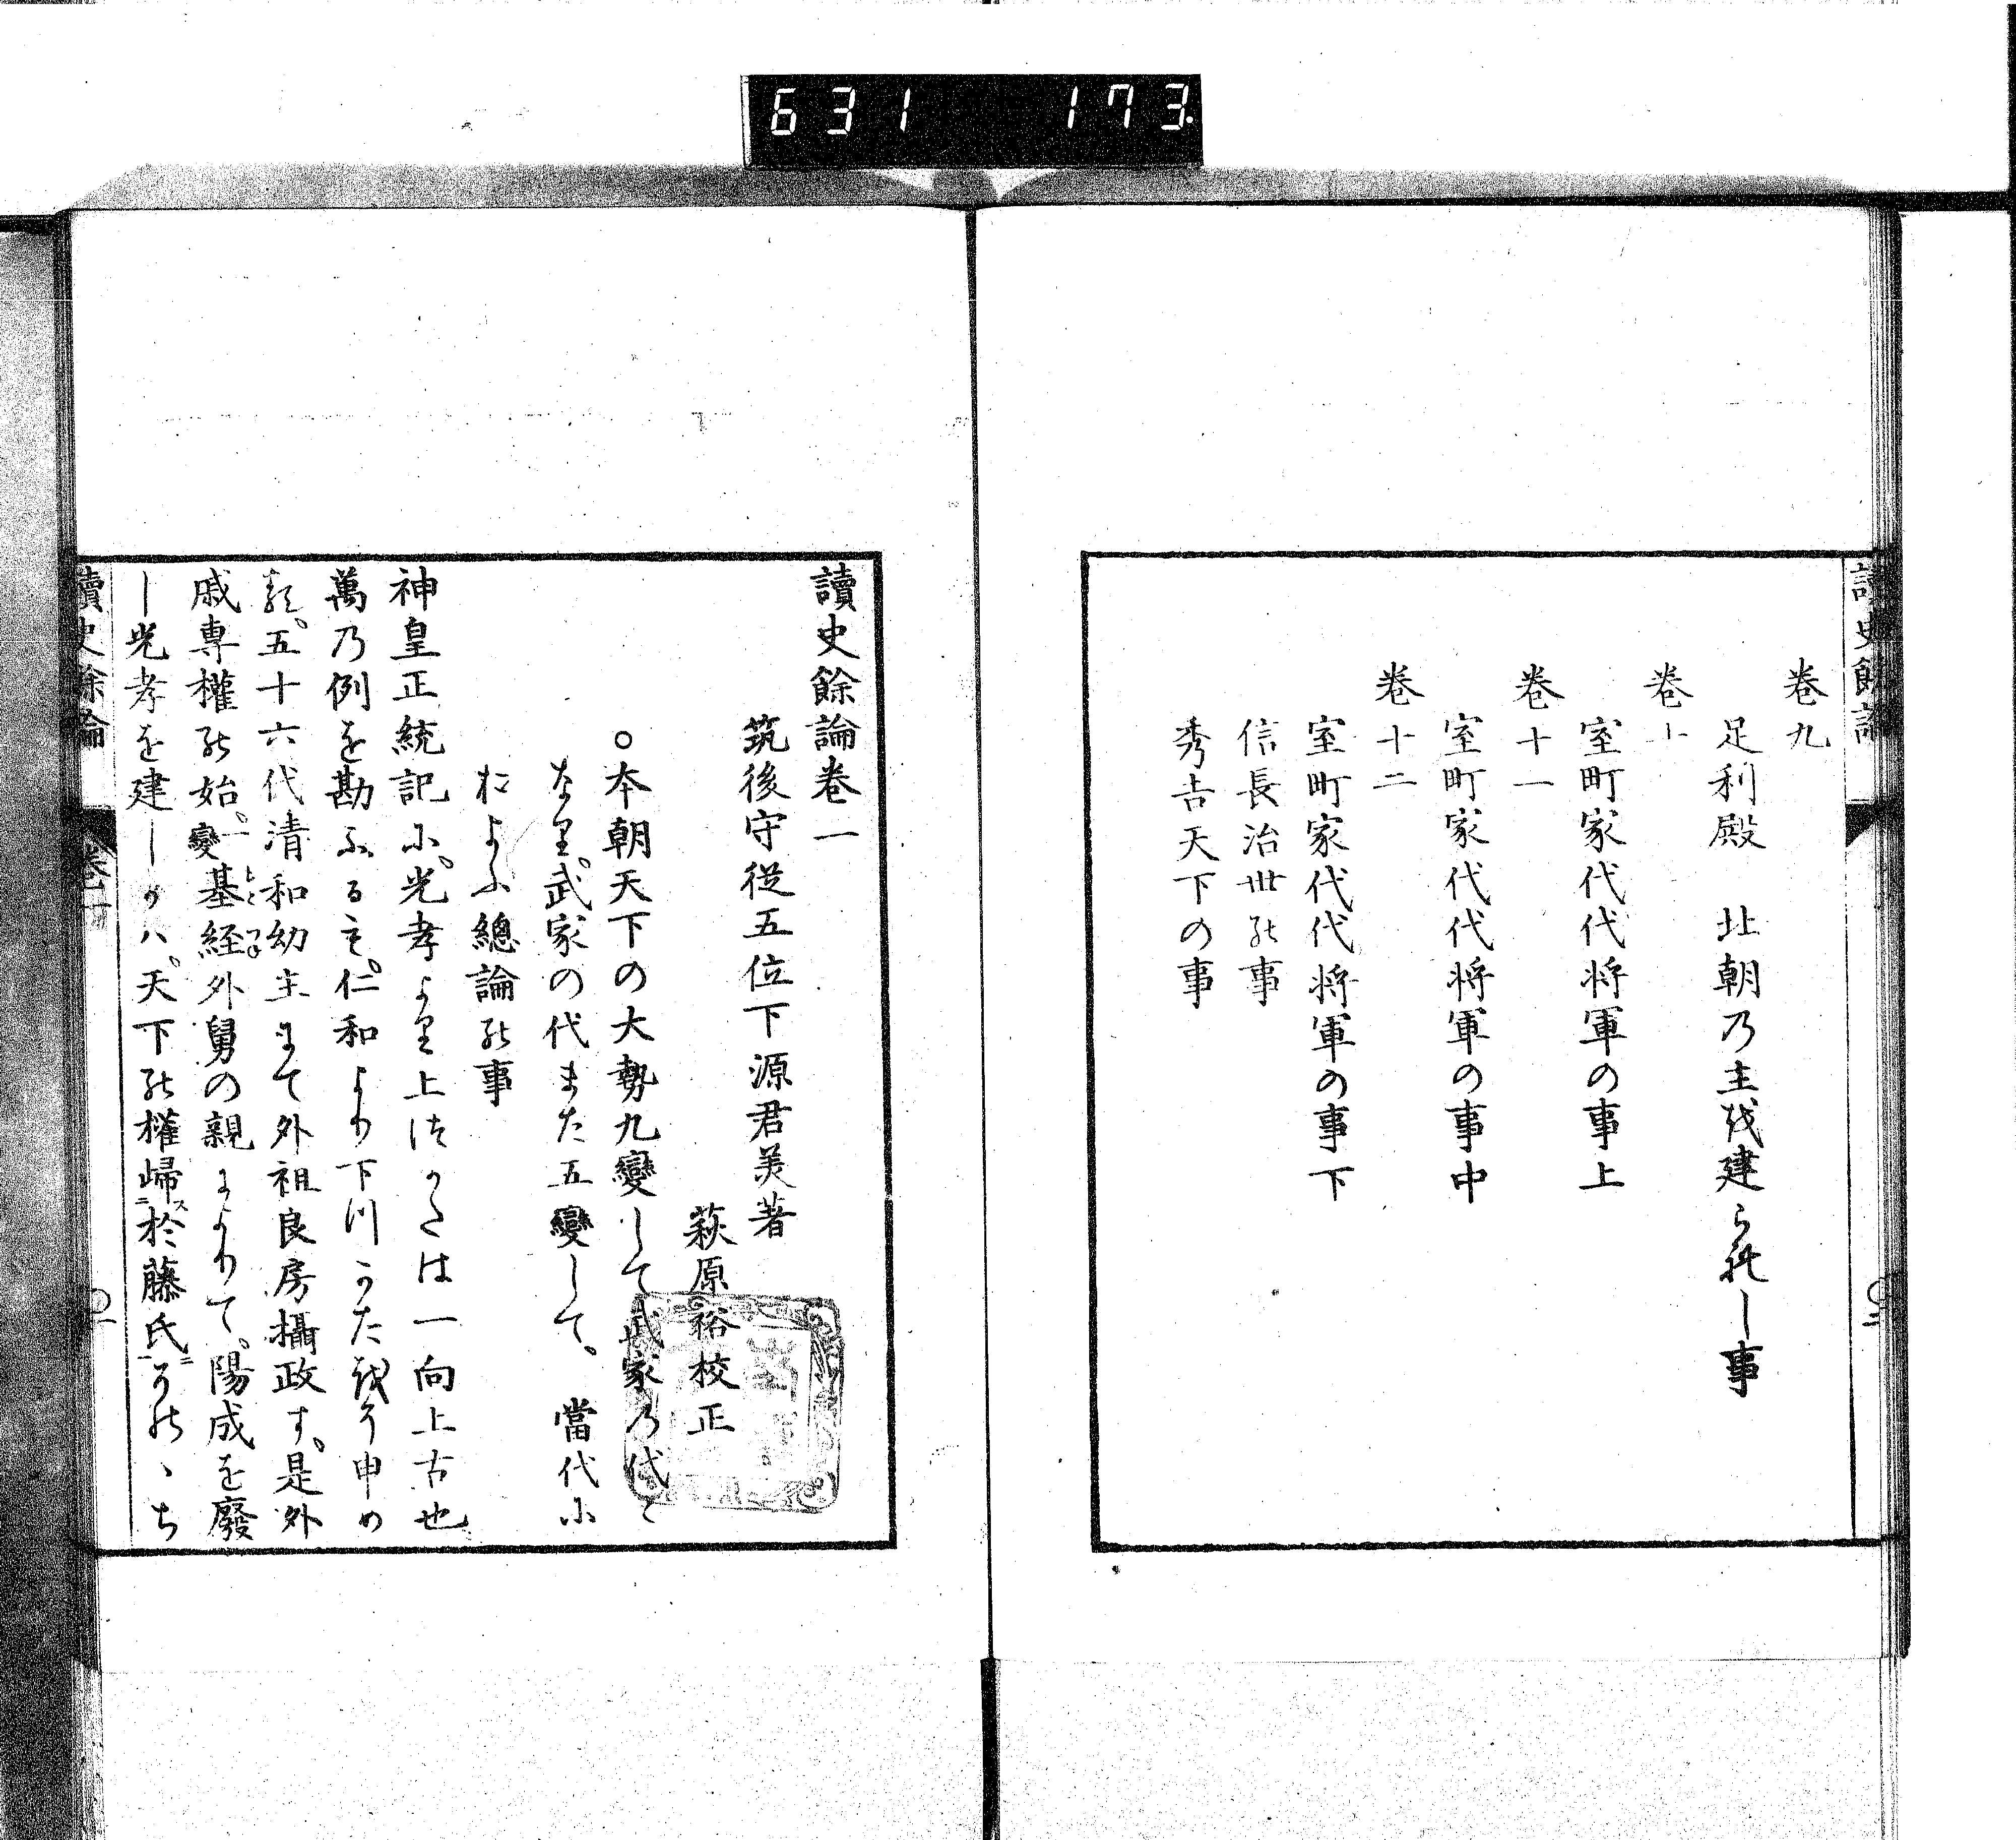 631 173.
讀史餘論
卷九
足利殿 北朝乃主越建られし事
卷十
室町家代代将軍の事上
卷十一
室町家代代将軍の事中
卷十二
室町家代代将軍の事下
信長治世能事
秀吉天下の事
讀史餘論卷一
筑後守従五位下源君美著
萩原裕校正
○本朝天下の大勢九變して武家乃代と
なり。武家の代また五變して。當代に
およふ總論能事
神皇正統記に。光孝より上つかたは一向上古也
萬乃例を勘ふるも。仁和より下つかた越そ申め
る。五十六代清和幼主にて外祖良房攝政す。是外
戚專權能始。一變基経外舅の親によりて。陽成を廢
し光孝を建しかハ。天下能權歸於藤氏そ能のち
讀史餘論 卷一 ○一